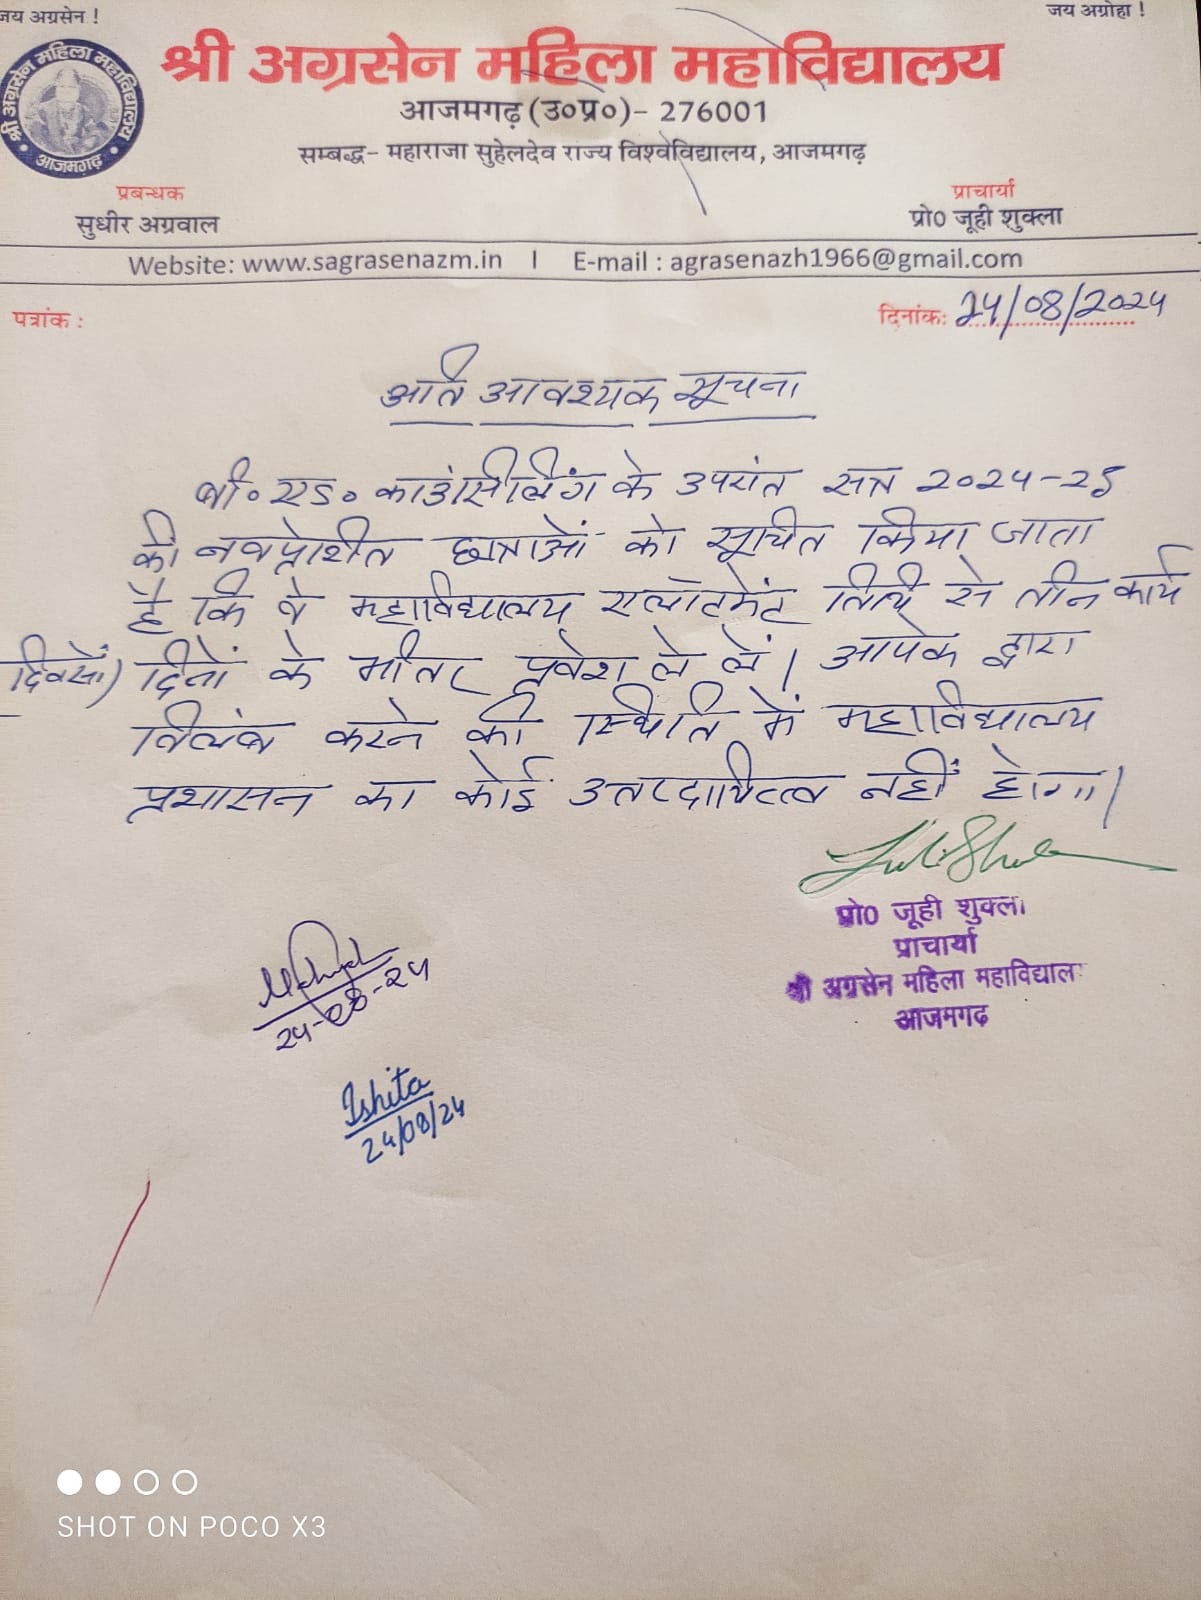 जय अग्रसेन !
जय अग्रोहा !
श्री अग्रसेन महिला महाविद्यालय
आजमगढ़
श्री अग्रसेन महिला महाविद्यालय
आजमगढ़ (उ०प्र०)- 276001
सम्बद्ध- महाराजा सुहेलदेव राज्य विश्वविद्यालय, आजमगढ़
प्रबन्धक
सुधीर अग्रवाल
प्राचार्या
प्रो० जूही शुक्ला
Website: www.sagrasenazm.in | E-mail : agrasenazh1966@gmail.com
पत्रांक :
दिनांक: 24/08/2024
अति आवश्यक सूचना
बी० एड० काउंसीलिंग के उपरांत सत्र 2024-25
की नवप्रवेशित छात्राओं को सूचित किया जाता
है कि वे महाविद्यालय एलॉटमेंट तिथि से तीन कार्य
दिवसों) दिनों के भीतर प्रवेश ले लें। आपके द्वारा
विलंब करने की स्थिति में महाविद्यालय
प्रशासन का कोई उत्तरदायित्व नहीं होगा।
प्रो० जूही शुक्ला
प्राचार्या
श्री अग्रसेन महिला महाविद्यालय
आजमगढ़
24-08-24
Ishita
24/08/24
SHOT ON POCO X3